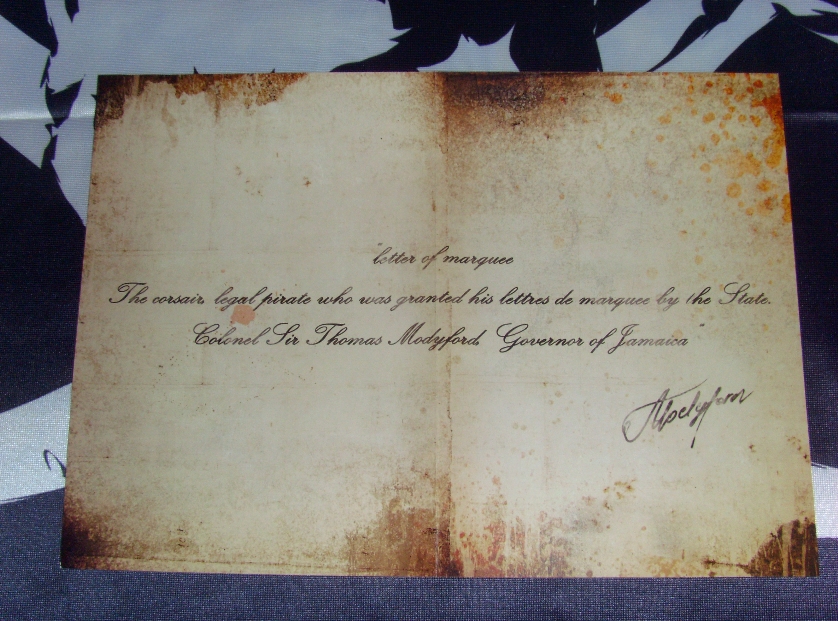 letter of marquee
The corsair, legal pirate who was granted his lettres de marquee by the State.
Colonel Sir Thomas Modyford, Governor of Jamaica